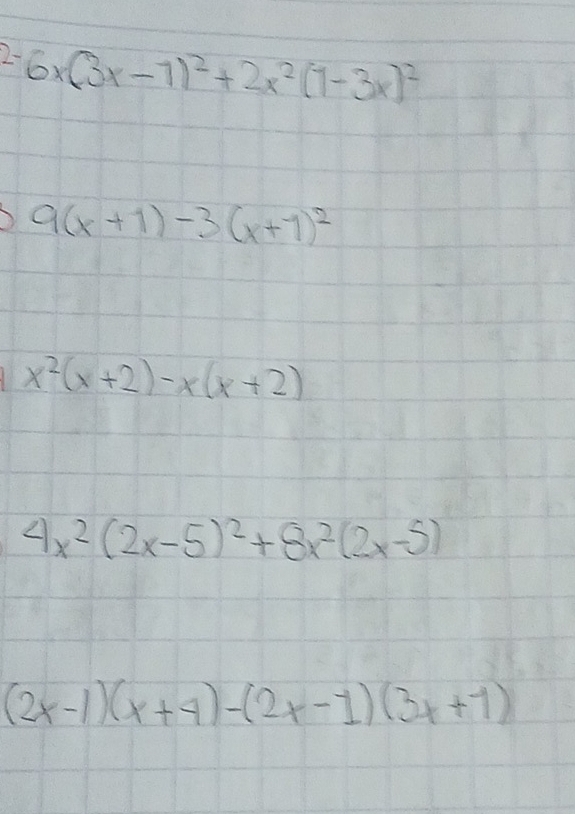 2- 6x(3x-1)²+2x²(1-3x)²
9(x+1)-3(x+1)²
x²(x+2)-x(x+2)
4x²(2x-5)²+8x²(2x-5)
(2x-1)(x+4)-(2x-1)(3x+1)